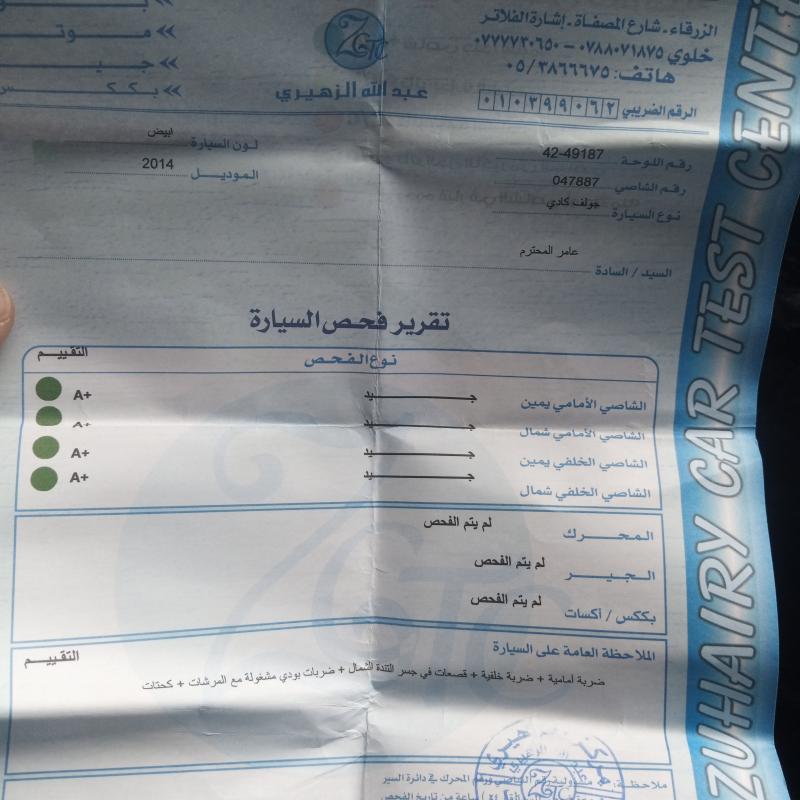 الزرقاء - شارع المصفاة - إشارة الفلاتر
خلوي ٠٧٨٨٠٧١٨٧٥ - ٠٧٧٧٧٣٠٦٥٠
هاتف: ٠٥/٣٨٦٦٦٧٥
الرقم الضريبي ٠١٠٣٩٩٠٦٢
ZGTC
عبد الله الزهيري
رقم اللوحة 42-49187
لون السيارة ابيض
رقم الشاصي 047887
الموديل 2014
نوع السيارة جولف كادي
السيد / السادة عامر المحترم
تقرير فحص السيارة
نوع الفحص
التقييم
الشاصي الأمامي يمين جيد A+
الشاصي الأمامي شمال جيد A+
الشاصي الخلفي يمين جيد A+
الشاصي الخلفي شمال جيد A+
المحرك لم يتم الفحص
الجير لم يتم الفحص
بككس / أكسات لم يتم الفحص
الملاحظة العامة على السيارة
التقييم
ضربة أمامية + ضربة خلفية + قصعات في جسر التندة الشمال + ضربات بودي مشغولة مع المرشات + كحتات
ملاحظة:
ورقم المحرك في دائرة السير
ساعة من تاريخ الفحص
ZUHAIRY CAR TEST CENT